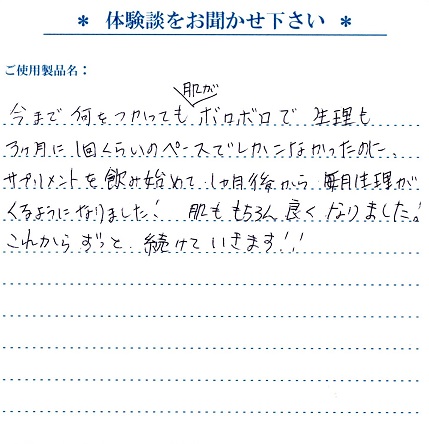 ＊ 体験談をお聞かせ下さい ＊
ご使用製品名：
肌が
今まで何をつかっても ボロボロで 生理も
3ヶ月に1回くらいのペースでしかこなかったのに、
サプリメントを飲み始めて、1ヶ月後から 毎月生理が
くるようになりました! 肌ももちろん良くなりました!
これからずっと 続けていきます!!